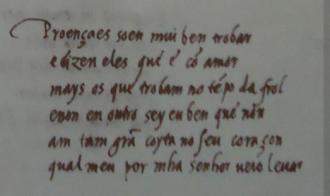 Proençaes soen mui ben trobar
e dizen eles que é cõ amor
mays os que trobam no tẽpo da frol
e non en outro sey eu ben que nõn
am tam grã coyta no seu coraçon
qual meu por mha senhor veio levar